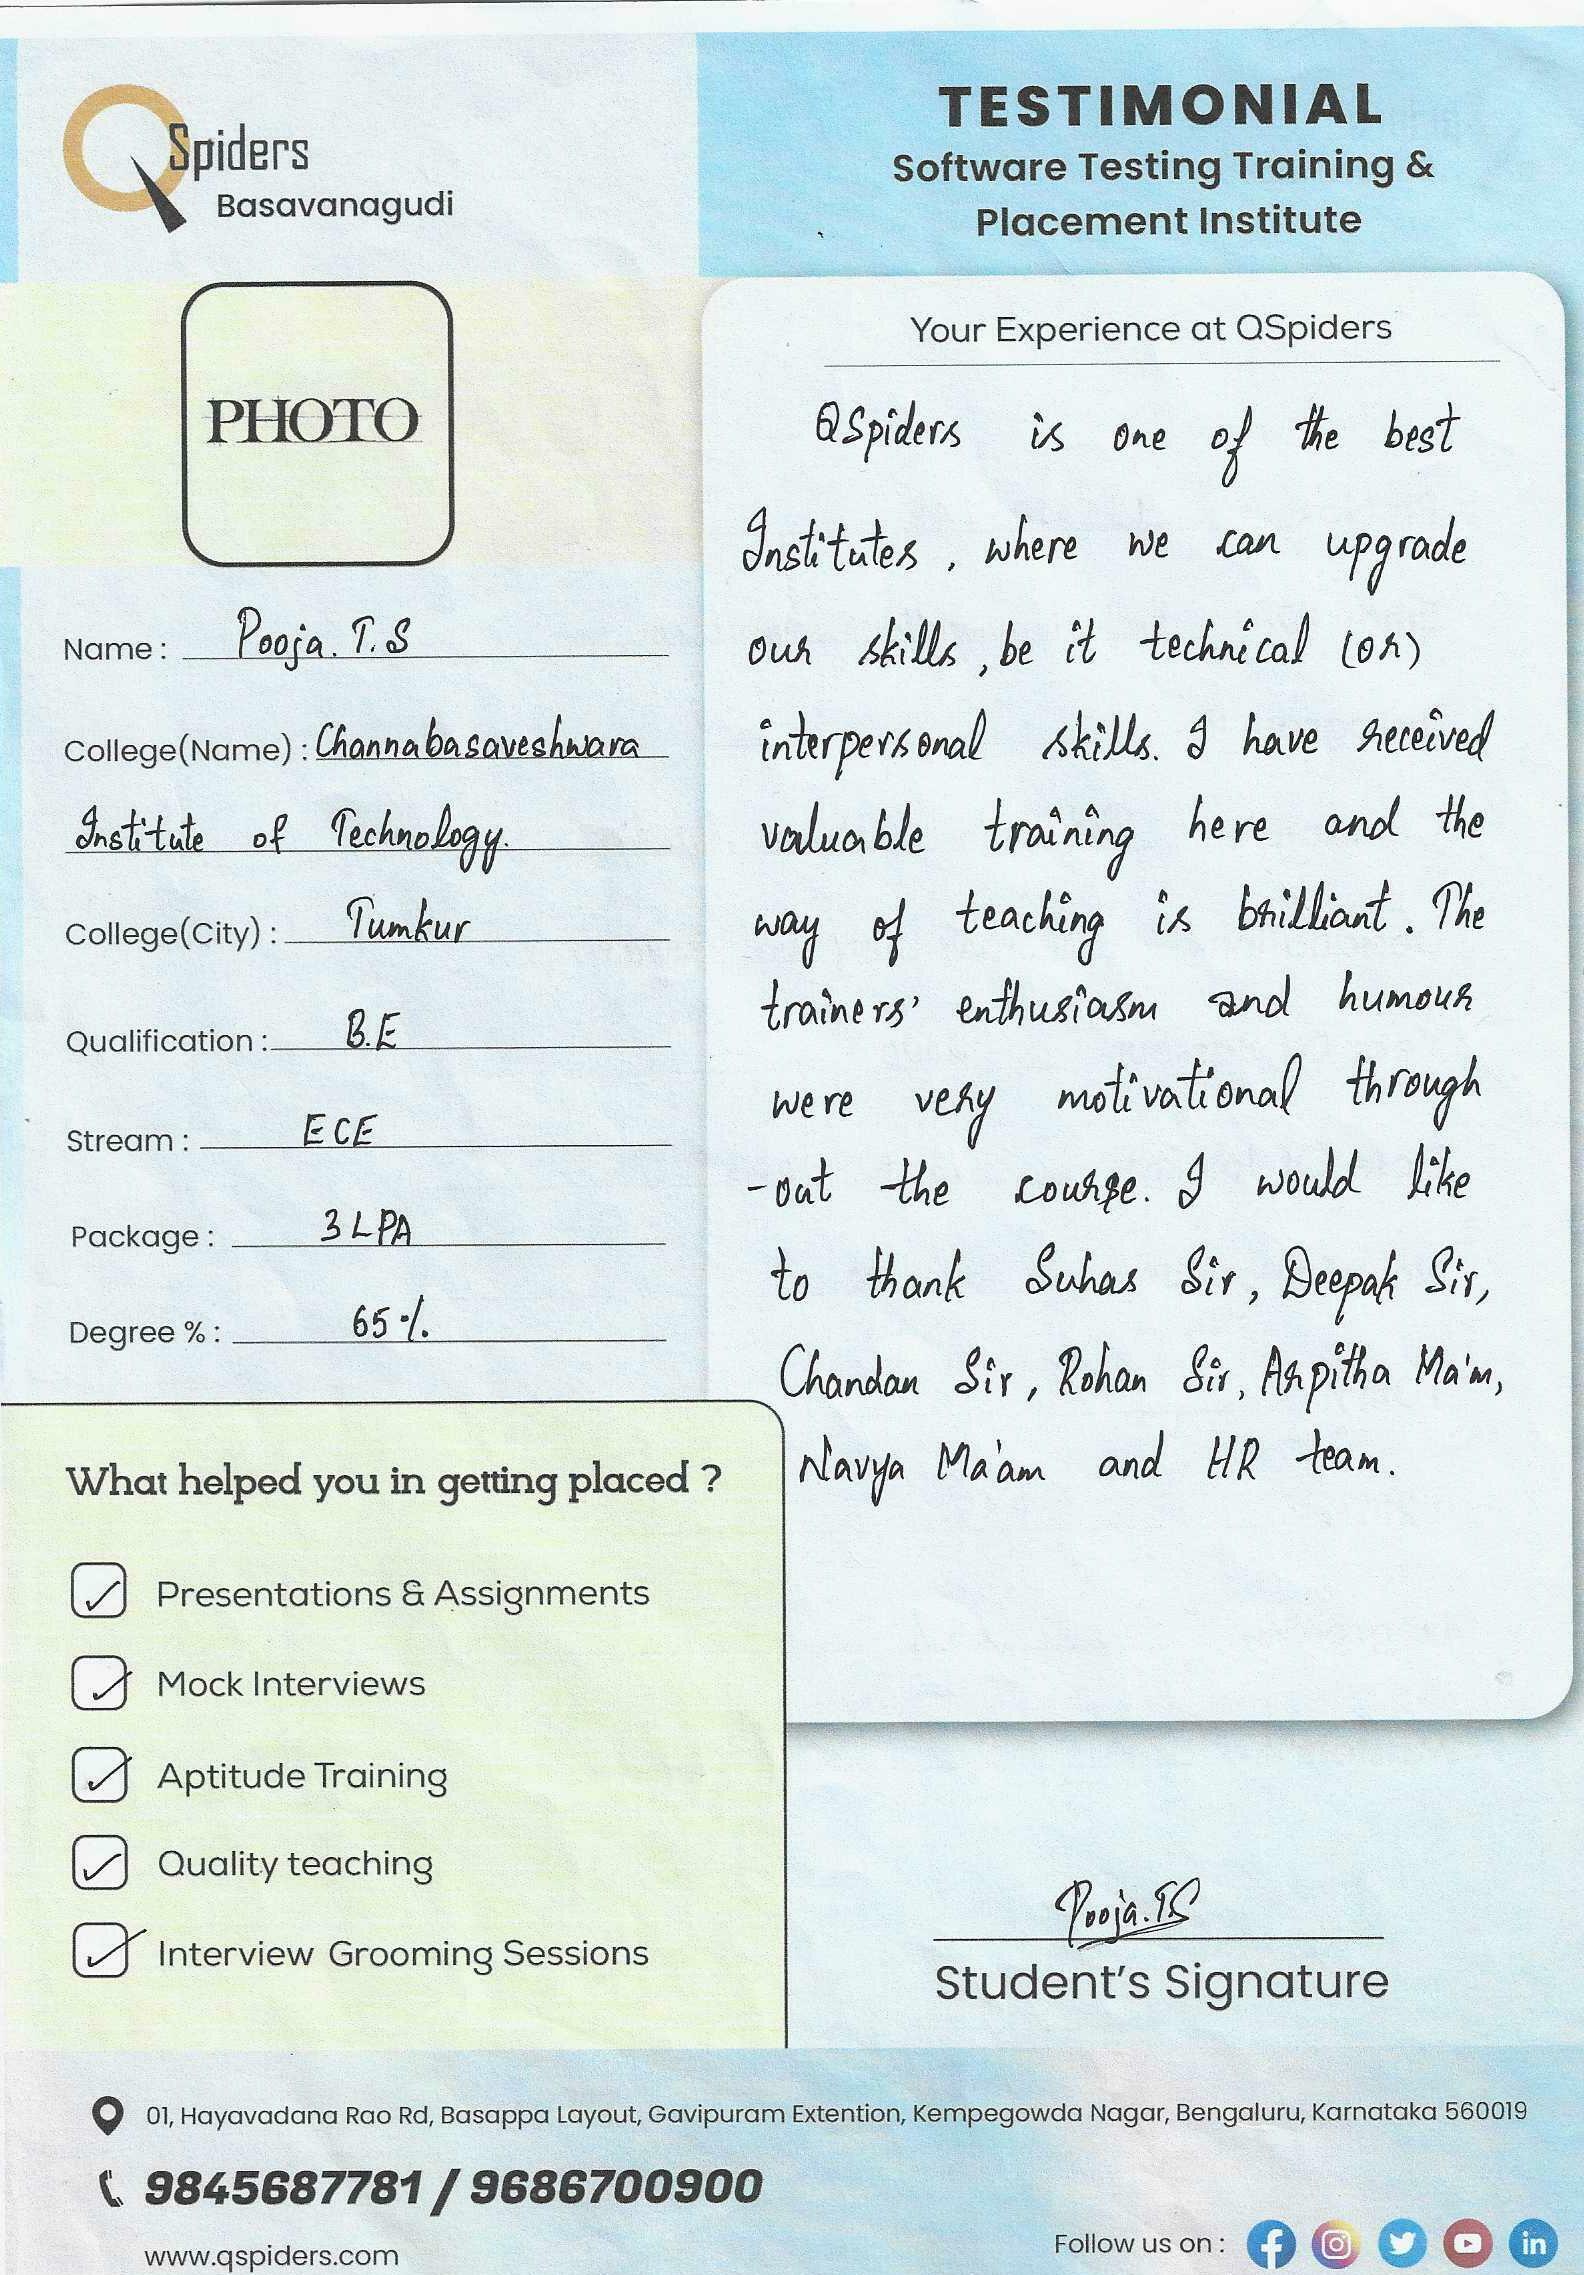 QSpiders
Basavanagudi
TESTIMONIAL
Software Testing Training &
Placement Institute
PHOTO
Name : Pooja. T.S
College(Name) : Channabasaveshwara
Institute of Technology.
College(City) : Tumkur
Qualification : B.E
Stream : ECE
Package : 3 LPA
Degree % : 65 %
What helped you in getting placed ?
Presentations & Assignments
Mock Interviews
Aptitude Training
Quality teaching
Interview Grooming Sessions
Your Experience at QSpiders
QSpiders is one of the best
Institutes, where we can upgrade
our skills, be it technical (or)
interpersonal skills. I have received
valuable training here and the
way of teaching is brilliant. The
trainers' enthusiasm and humour
were very motivational through
-out the course. I would like
to thank Suhas Sir, Deepak Sir,
Chandan Sir, Rohan Sir, Arpitha Ma'm,
Navya Ma'am and HR team.
Pooja.TS
Student's Signature
01, Hayavadana Rao Rd, Basappa Layout, Gavipuram Extention, Kempegowda Nagar, Bengaluru, Karnataka 560019
9845687781 / 9686700900
www.qspiders.com
Follow us on :